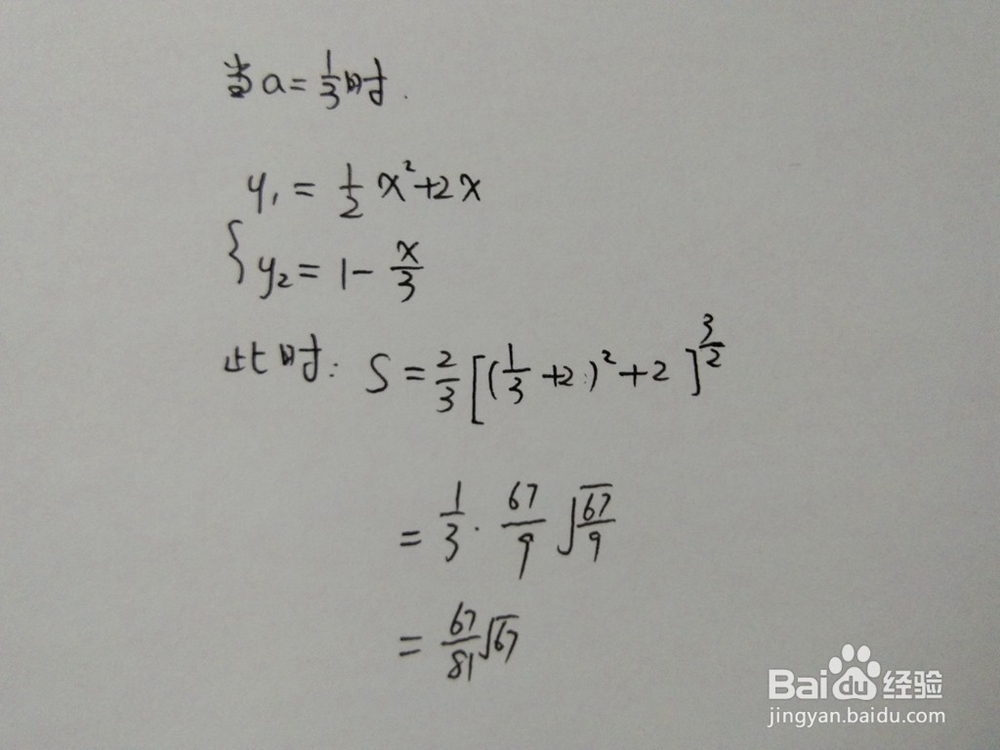 当a=1/3时.
y₁ = 1/2 x²+2x
{y₂ = 1 - x/3
此时: S = 2/3 [(1/3 +2)² + 2]^(3/2)
= 1/3 · 67/9 √(67/9)
= 67/81 √67
Baidu经验
jingyan.baidu.com